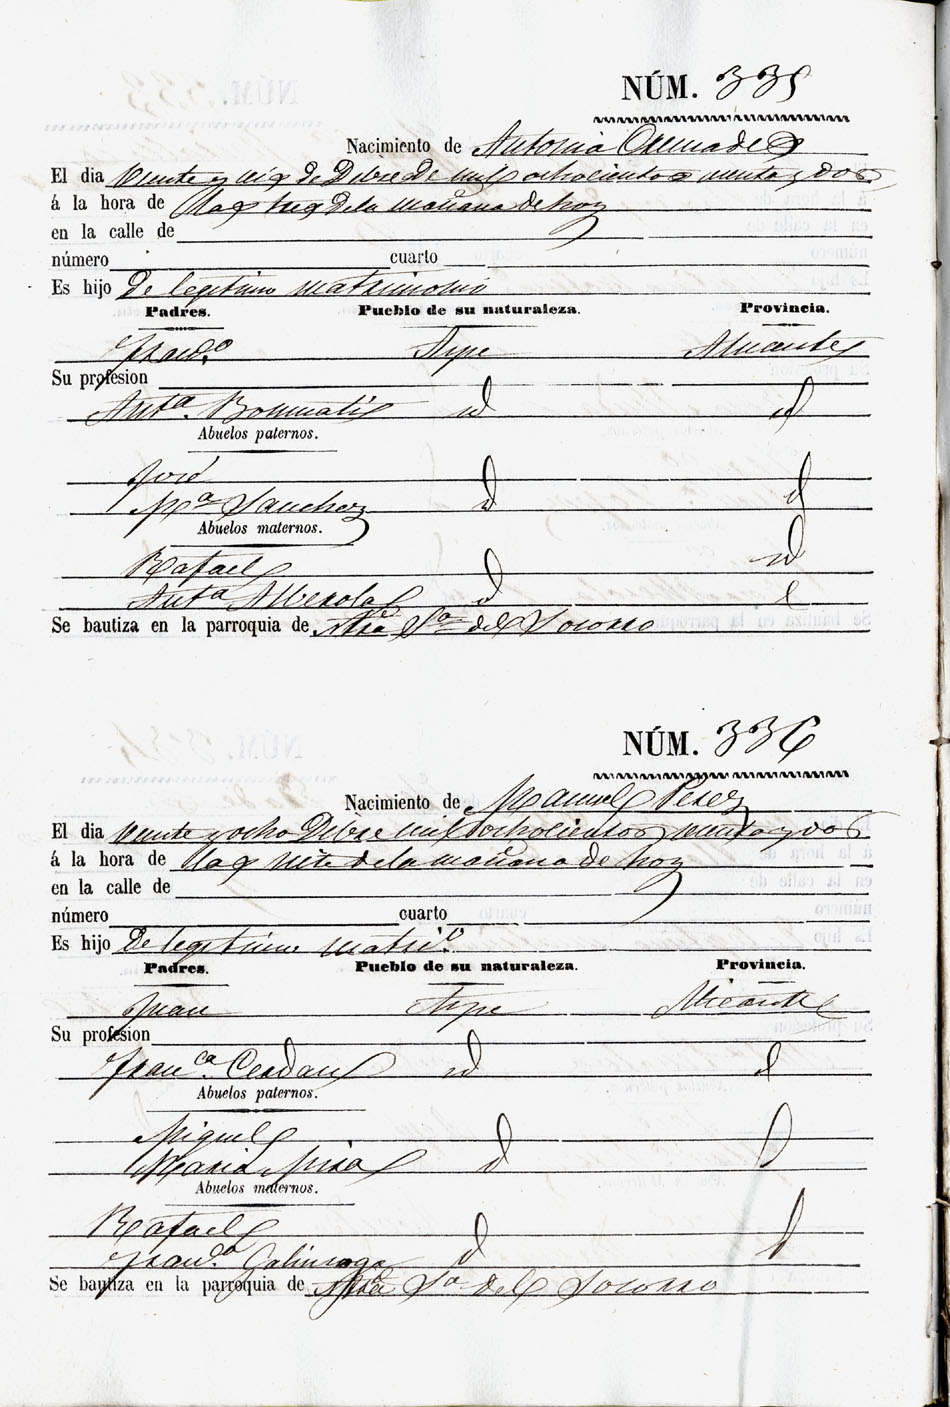 NÚM. 335
Nacimiento de Antonia Cremades
El dia veinte y seis de Dibre de mil ochocientos y dos
á la hora de las tres de la mañana de hoy
en la calle de
número cuarto
Es hijo De legitimo matrimonio
Padres. Pueblo de su naturaleza. Provincia.
Franco. Aspe Alicante
Su profesion
Anta. Bonmati id id
Abuelos paternos.
José
Ma Sanchez id id
Abuelos maternos.
Rafael id
Anta Alberola id
Se bautiza en la parroquia de Ntra Sa del Socorro
NÚM. 336
Nacimiento de Manuel Perez
El dia veinte y ocho Dibre mil ochocientos y dos
á la hora de las siete de la mañana de hoy
en la calle de
número cuarto
Es hijo De legitimo matrio.
Padres. Pueblo de su naturaleza. Provincia.
Juan Aspe Alicante
Su profesion
Franca. Cerdan id id
Abuelos paternos.
Miguel
Maria Mira id id
Abuelos maternos.
Rafael
Franca. Galinsoga id id
Se bautiza en la parroquia de Ntra Sa del Socorro